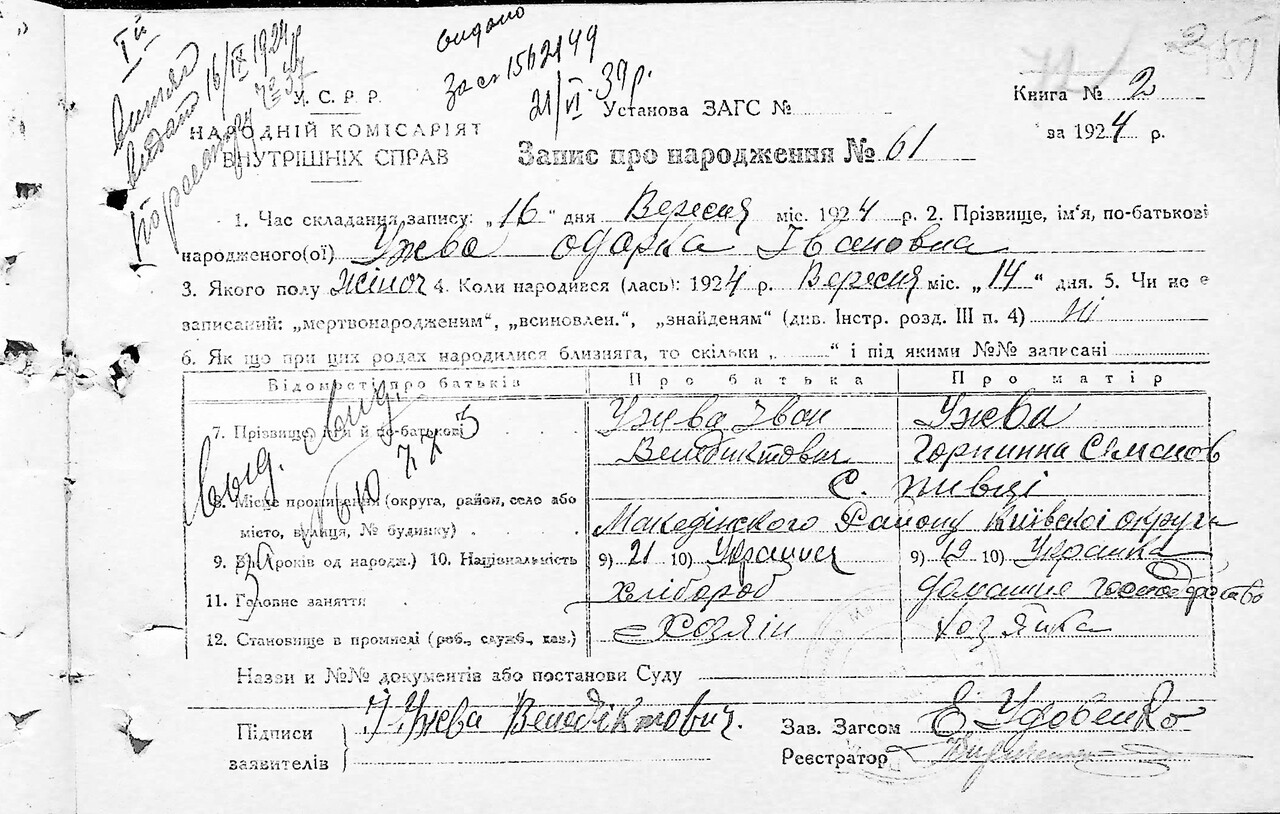 Ій
витяг
видано 16/IX 1924
по реєстру № 37
видано
За № 1562149
21/VI 39 р.
У. С. Р. Р.
НАРОДНІЙ КОМІСАРІЯТ
ВНУТРІШНІХ СПРАВ
Установа ЗАГС №
Книга № 2
за 1924 р.
Запис про народження № 61
1. Час складання запису: „16" дня Вересня міс. 1924 р. 2. Прізвище, ім'я, по-батькові
народженого(ої) Ужва Одарка Івановна
3. Якого полу Жіноч 4. Коли народився (лась): 1924 р. Вересня міс. „14" дня. 5. Чи не є
записаний: „мертвонародженим", „всиновлен.", „знайденям" (див. Інстр. розд. III п. 4) Ні
6. Як що при цих родах народилися близнята, то скільки „ " і під якими №№ записані
Відомості про батьків Про батька Про матір
7. Прізвище, ім'я й по-батькові Ужва Іван Ужва
Венедиктович Горпинна Симонов
8. Місце проживання (округа, район, село або С. Пивці
місто, вулиця, № будинку) Македінского Району Київскої округи
9. Вік (років од народж.) 10. Національність 9) 21 10) Украинец 9) 19 10) Украинка
11. Головне заняття хлібороб домашнє господарство
12. Становище в промислі (роб., служб., хаз.) Хозяін хозяйка
Назви и №№ документів або постанови Суду
Підписи
заявителів
І Ужва Венедіктович.
Зав. Загсом Е Удовенко
Реєстратор